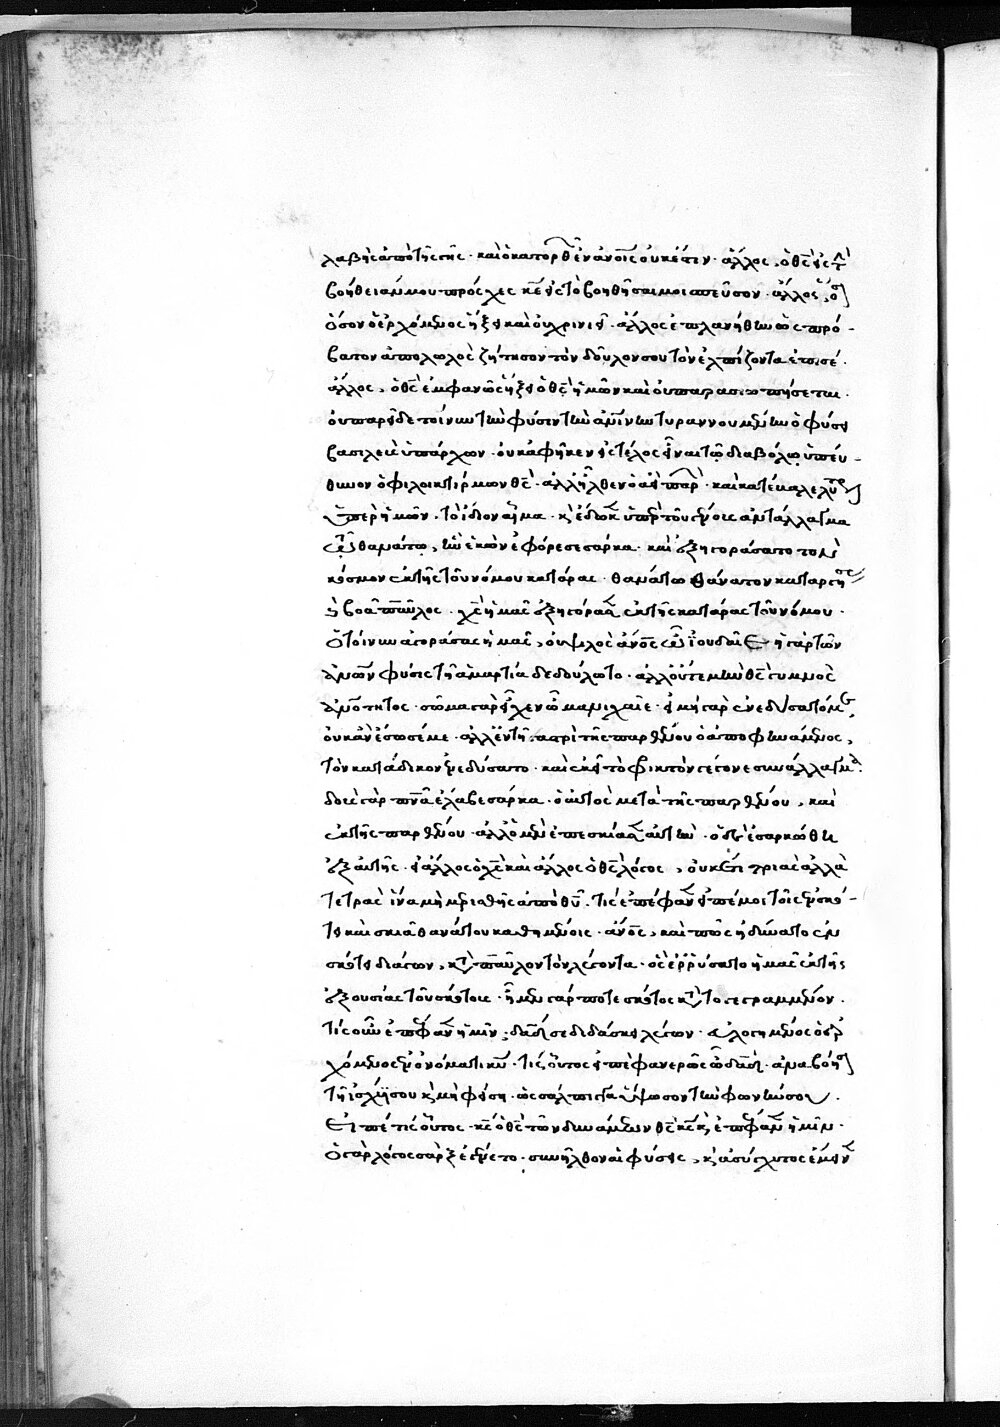 λαβὴς ἀπὸ τῆς γῆς · καὶ ὁ κατορθ ἐν ἀνοις οὐκ ἔστιν · ἄλλος, ὁ θς εἰς τ
βοήθειάν μου πρόσχες κε εἰς τὸ βοηθῆσαί μοι σπεῦσον · ἄλλος,
ὅσον ὁ ἐρχόμενος ἥξει καὶ οὐ χρονιεῖ · ἄλλος ἐπλανήθην ὡς πρό-
βατον ἀπολωλὸς ζήτησον τὸν δοῦλον σου τὸν ἐλπίζοντα ἐπι σέ ·
ἄλλος, ὁ θς ἐμφανῶς ἥξει ὁ θς ἡμῶν καὶ οὐ παρασιωπήσεται ·
οὐ παρεῖδε τοίνυν τὴν φύσιν τὴν ἀνίνην τυραννουμένην ὁ φύσει
βασιλεὺς ὑπάρχων · οὐκ ἀφῆκεν εἰς τέλος εἶναι τῷ διαβόλῳ ὑπεύ-
θυνον ὁ φιλοικτίρμων θς · ἀλλ' ἦλθεν ὁ ἀεὶ παρ · καὶ κατέβαλε λύ
ὑπὲρ ἡμῶν · τὸ ἴδιον αἷμα · κ ἔδωκ ὑπὲρ τοῦ γένους ἀντάλλαγμα
θανάτῳ, ἣν ἐκὼν ἐφόρεσε σάρκα · καὶ ἐξηγοράσατο τὸν
κόσμον ἐκ τῆς τοῦ νόμου κατάρας · θανάτῳ θάνατον καταργή
κ βοᾶ παῦλος · χς ἡμᾶς ἐξηγόρασ ἐκ τῆς κατάρας τοῦ νόμου ·
ὁ τοίνυν ἀγοράσας ἡμᾶς, οὐ ψιλὸς ἀνος ἰουδαῖε ἡ γὰρ τῶν
ἀνων φύσις τῆ ἁμαρτία δεδούλωτο · ἀλλ' οὔτε γυμνὸς
ἀνότητος · σῶμα γὰρ εἶχεν ὦ μανιχαῖε · εἰ μὴ γὰρ ἐνεδύσατό με
οὐκ ἂν ἔσωσέ με · ἀλλ' ἐν τῇ γαστρὶ τῆς παρθένου ὁ ἀποφηνάμενος,
τὸν κατάδικον ἐνεδύσατο · καὶ ἐκεῖ τὸ φρικτὸν γέγονε συνάλλαγμα ·
δοὺς γὰρ πνα ἔλαβε σάρκα · ὁ αὐτὸς μετὰ τῆς παρθένου, καὶ
ἐκ τῆς παρθένου · ἀλλ' ὃ μὲν ἐπεσκίασ αὐτήν · ὁ δὲ ἐσαρκώθη
ἐξ αὐτῆς · εἰ ἄλλος ὁ χς καὶ ἄλλος ὁ θς λόγος, οὐκέτι τριὰς ἀλλὰ
τετρὰς ἵνα μὴ μερισθῆς ἀπὸ θυ · τίς ἐπέφανεν εἰπέ μοι τοῖς ἐν σκό-
τει καὶ σκιᾶ θανάτου καθημένοις · ἀνος, καὶ πῶς ἠδύνατο ἐν
σκότει διάγων, κατὰ παῦλον τὸν λέγοντα · ὃς ἐρρύσατο ἡμᾶς ἐκ τῆς
ἐξουσίας τοῦ σκότους · ἦμεν γάρ ποτε σκότος κατὰ τὸ γεγραμμένον ·
τίς οὖν ἐπέφαν ἡμῖν ; δαδ σε διδάσκει λέγων · εὐλογημένος ὁ ἐρ
χόμενος ἐν ὀνόματι κυ · τίς οὗτος εἰπὲ φανερῶς ὦ δαδ · ἀναβόησ
τῆ ἰσχύϊ σου κ μὴ φείση · ὡς σάλπιγγα ὕψωσον τὴν φωνήν σου ·
εἰπὲ τίς οὗτος · κς ὁ θς τῶν δυνάμεων θς κς κ ἐπέφανεν ἡμῖν ·
ὁ γὰρ λόγος σὰρξ ἐγένετο · συνῆλθον αἱ φύσεις, κ ἀσύγχυτος ἔμειν